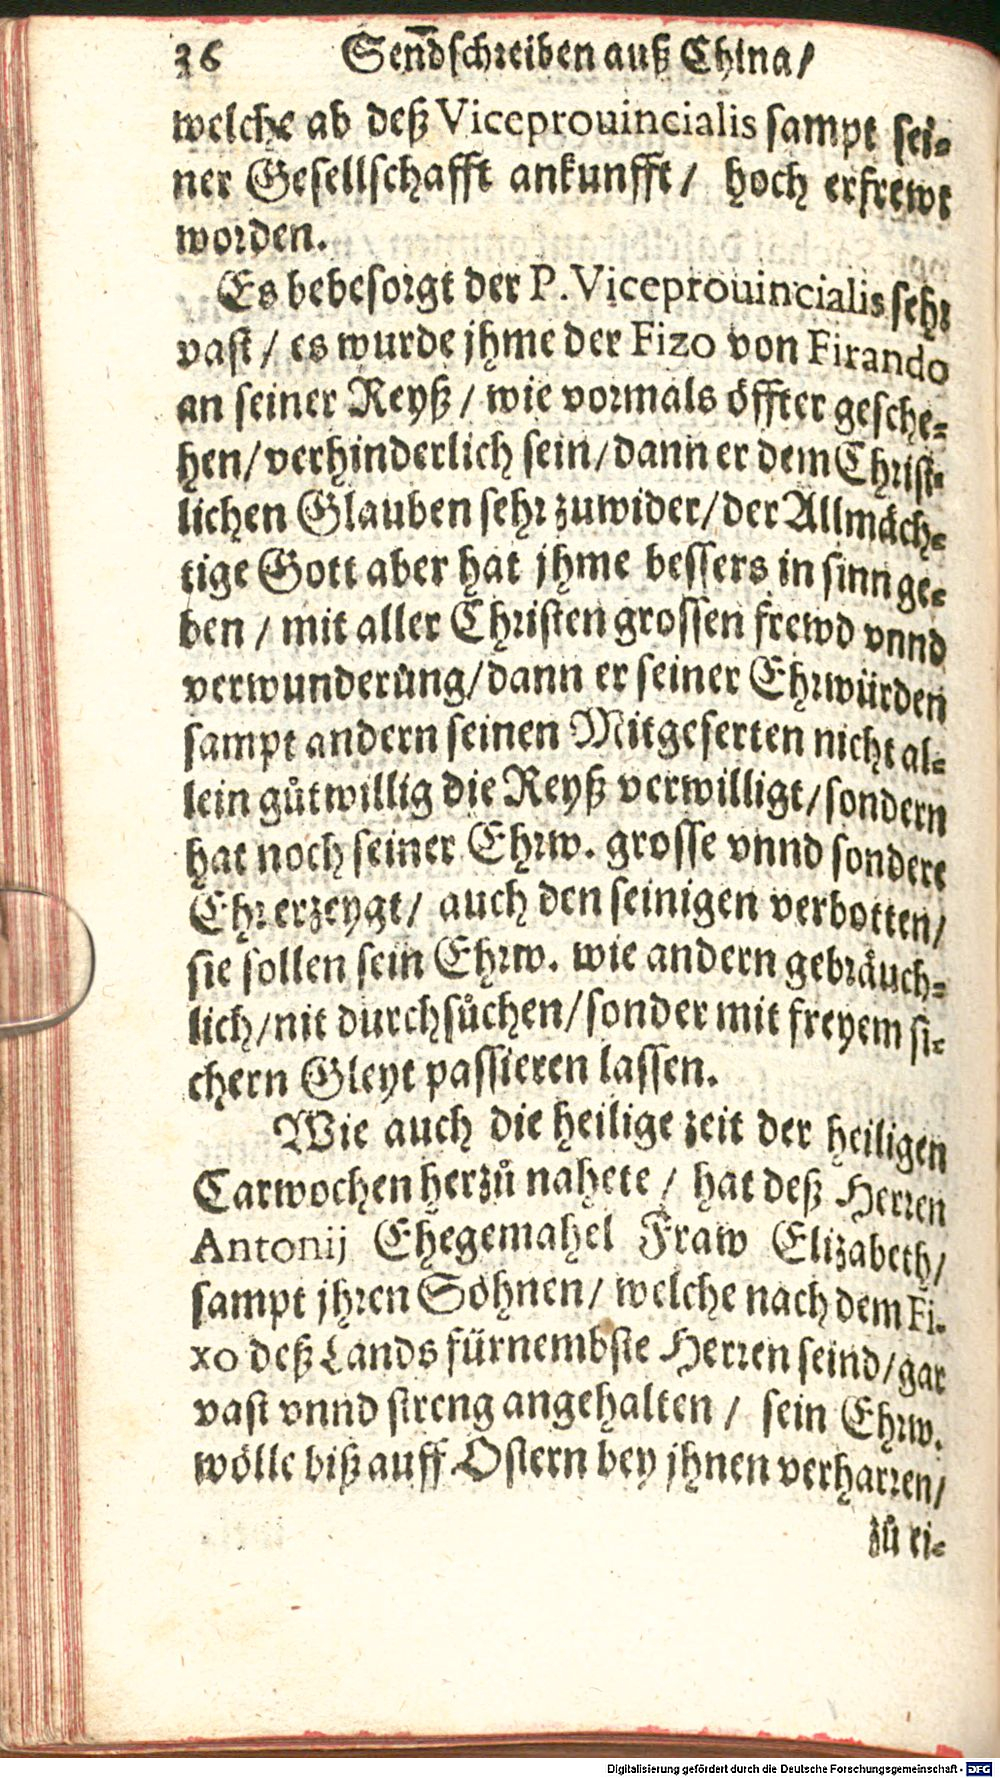 36 Senđschreiben auß China/
welche ab deß Viceprouincialis sampt sei-
ner Gesellschafft ankunfft/ hoch erfrewt
worden.
Es bebesorgt der P. Viceprouincialis sehr
vast/ es wurde jhme der Fizo von Firando
an seiner Reyß/ wie vormals öffter gesche-
hen/ verhinderlich sein/ dann er dem Christ-
lichen Glauben sehr zuwider/ der Allmäch-
tige Gott aber hat jhme bessers in sinn ge-
ben/ mit aller Christen grossen frewd vnnd
verwunderůng/ dann er seiner Ehrwürden
sampt andern seinen Mitgeferten nicht al-
lein gůtwillig die Reyß verwilligt/ sondern
hat noch seiner Ehrw. grosse vnnd sondere
Ehr erzeygt/ auch den seinigen verbotten/
sie sollen sein Ehrw. wie andern gebräuch-
lich/ nit durchsůchen/ sonder mit freyem si-
chern Gleyt passieren lassen.
Wie auch die heilige zeit der heiligen
Carwochen herzů nahete/ hat deß Herren
Antonij Ehegemahel Fraw Elizabeth/
sampt jhren Söhnen/ welche nach dem Fi-
xo deß Lands fürnembste Herren seind/ gar
vast vnnd streng angehalten/ sein Ehrw.
wölle biß auff Ostern bey jhnen verharren/
zů ei-
Digitalisierung gefördert durch die Deutsche Forschungsgemeinschaft - DFG